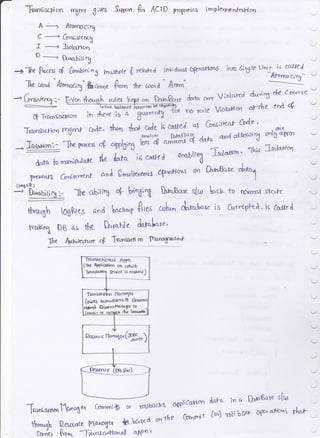 Transaction mgmt gives Support for ACID properties implementation
A → Atomocity
C → Consistency
I → Isolation
D → Durability
→ The Process of Combining multiple & related individual operations into Single Unit is called
"Atomocity"
The word Atomocity came from the word "Atom"
→ Consistency:- Even though rules kept on DataBase data are Violated during the Course
of Transaction in there is a guarantee for no rule Violation at the end of
Transaction mgmt code. then that code is called as Consistent Code.
→ Isolation:- The process of applying locks on amount of data and allowing only one appn
data to manipulate the data is called enabling Isolation. This Isolation
prevents Concurrent and Simultaneous operations on DataBase data
→ Durability:- The ability of bringing DataBase s/w back to normal state
through logfiles and backup files when database is Currepted. is Called
making DB as the Durable database.
The Architecture of Transaction Management
Transactional Appn
(the Application on which
Transaction service is enabled)
Transaction Manager
Resource Manager (JDBC
Resource (DB s/w)
Transaction Manager Commits or rollbacks application data in a DataBase s/w
through Resource Manager based on the Commit (or) rollback operations that
Comes from Transactional appn.